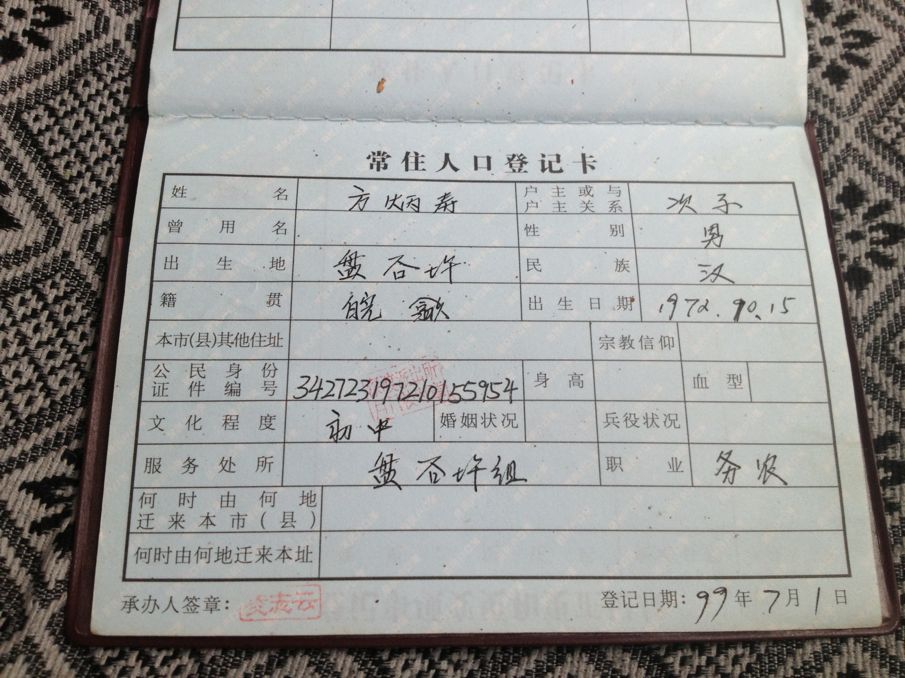 常住人口登记卡
姓名 方炳寿 户主或与户主关系 次子
曾用名 性别 男
出生地 盘谷圩 民族 汉
籍贯 皖歙 出生日期 1972.10.15
本市(县)其他住址 宗教信仰
公民身份证件编号 342723197210155954 身高 血型
文化程度 初中 婚姻状况 兵役状况
服务处所 盘谷圩组 职业 务农
何时由何地迁来本市(县)
何时由何地迁来本址
承办人签章: 志云 登记日期: 99年7月1日